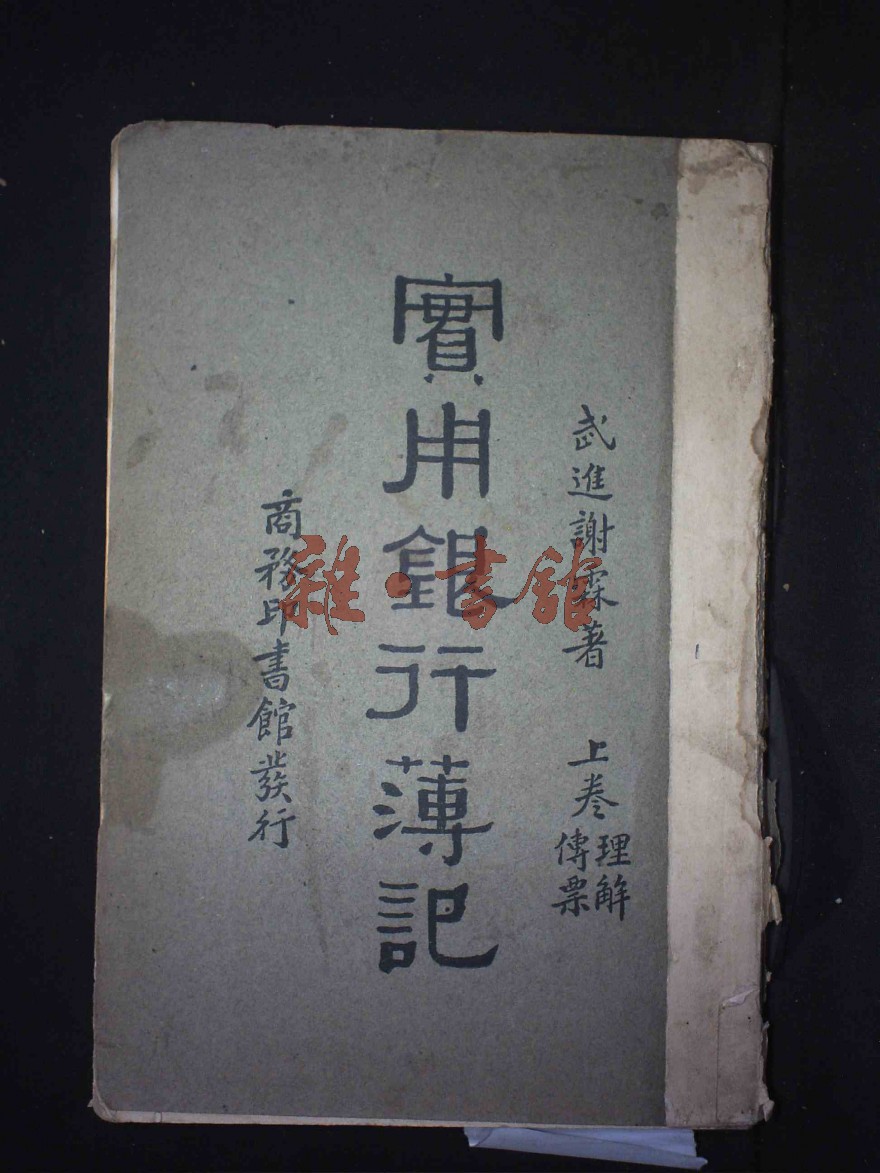 武進謝霖著 上卷 理解
傳票
實用銀行薄記
商務印書館發行
雜·書館